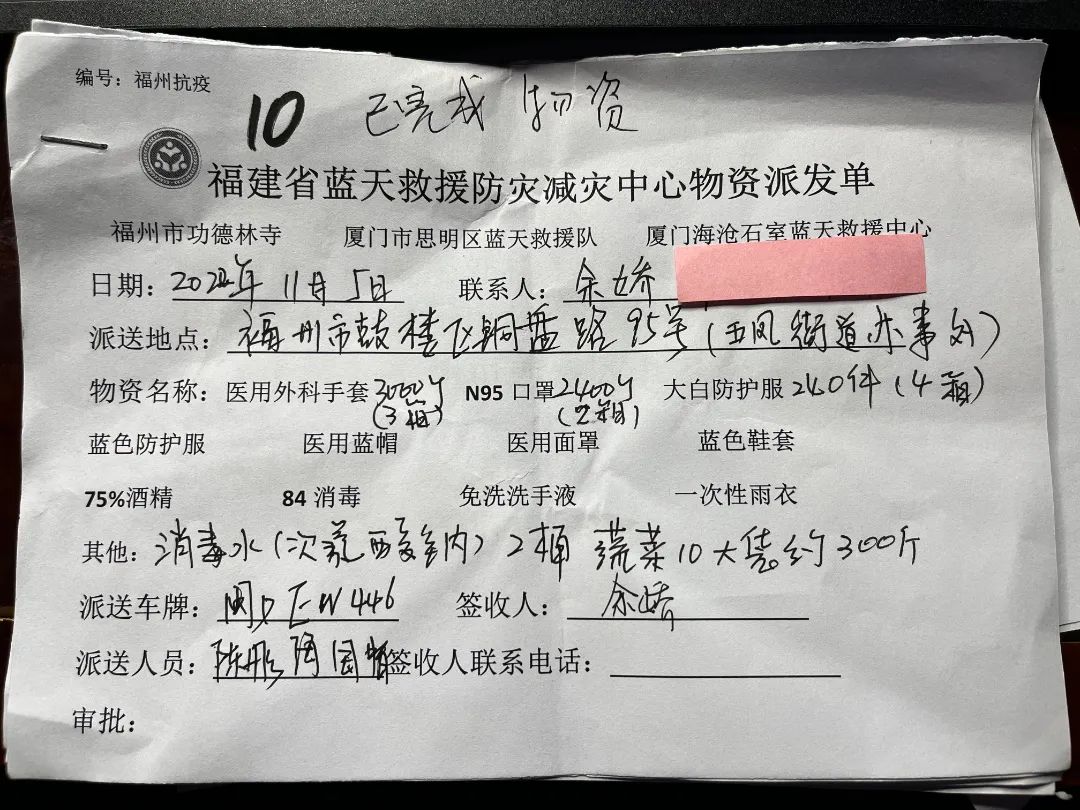 编号：福州抗疫
10 已完成 物资
福建省蓝天救援防灾减灾中心物资派发单
福州市功德林寺 厦门市思明区蓝天救援队 厦门海沧石室蓝天救援中心
日期：2022年11月5日 联系人：余娇
派送地点：福州市鼓楼区铜盘路95号(五凤街道办事处)
物资名称：医用外科手套3000个(3箱) N95 口罩2400个(2箱) 大白防护服240件(4箱)
蓝色防护服 医用蓝帽 医用面罩 蓝色鞋套
75%酒精 84 消毒 免洗洗手液 一次性雨衣
其他：消毒水(次氯酸室内)2桶 蔬菜10大袋约300斤
派送车牌：闽D 签收人：余娇
派送人员：陈 签收人联系电话：
审批：